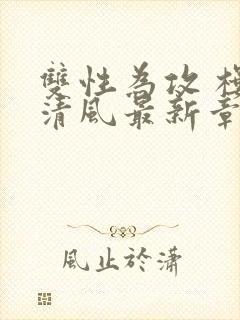 雙性為攻
清風最新章
風止於瀟